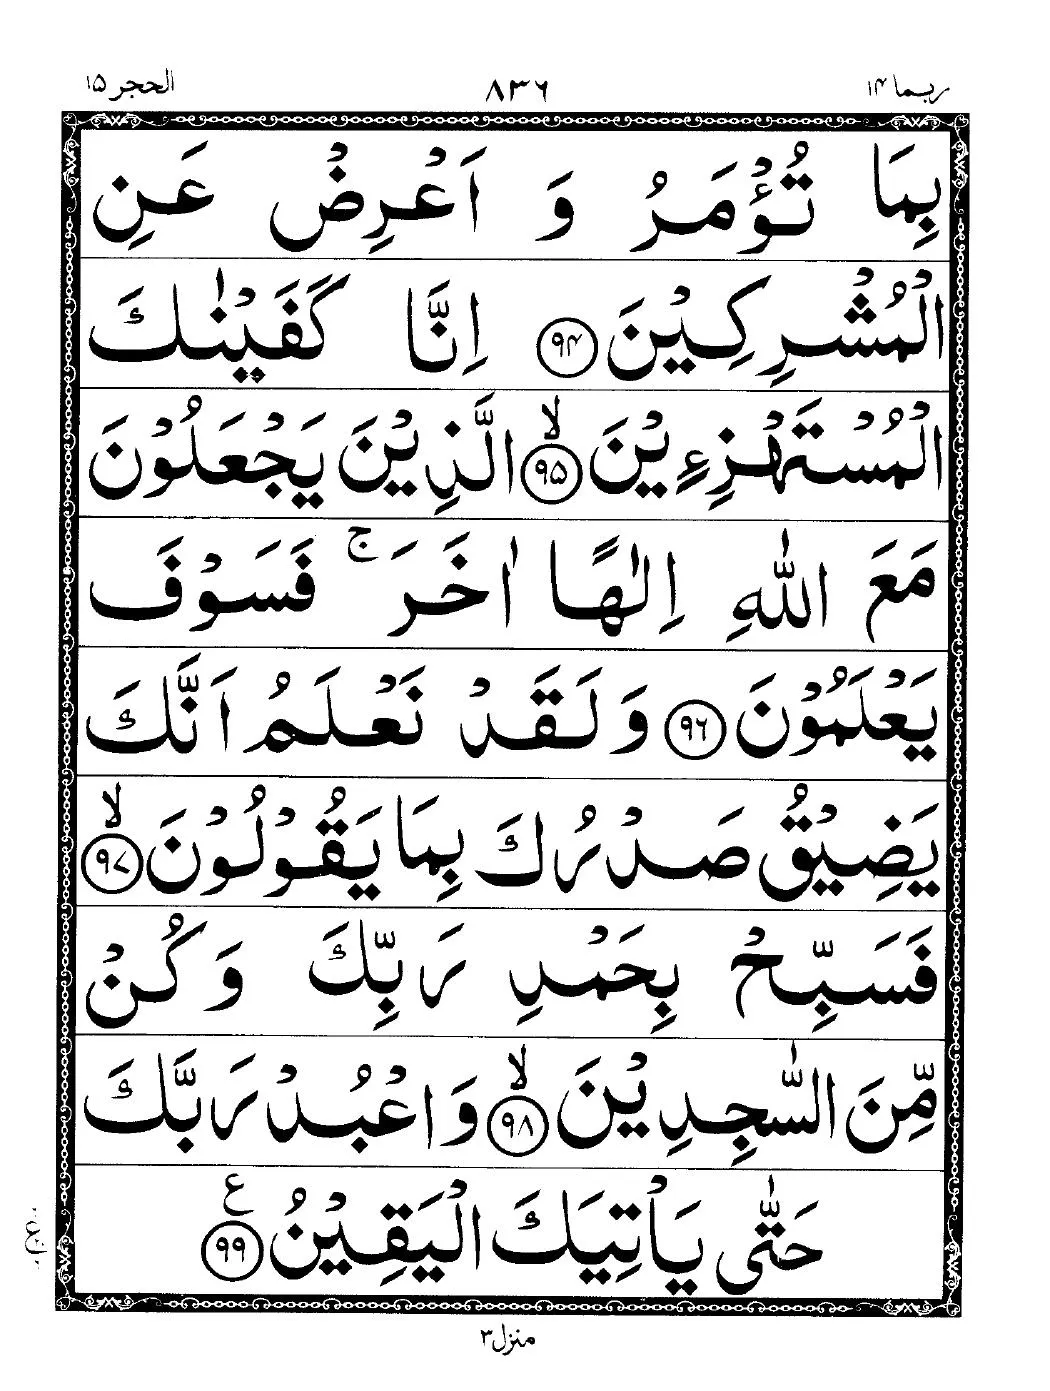 ربما ۱۴ ۸۳۶ الحجر ۱۵
بِمَا تُؤْمَرُ وَ اَعْرِضْ عَنِ
الْمُشْرِكِيْنَ ۹۴ اِنَّا كَفَيْنٰكَ
الْمُسْتَهْزِءِيْنَ ۹۵ ۙ الَّذِيْنَ يَجْعَلُوْنَ
مَعَ اللّٰهِ اِلٰهًا اٰخَرَ ۚ فَسَوْفَ
يَعْلَمُوْنَ ۹۶ وَلَقَدْ نَعْلَمُ اَنَّكَ
يَضِيْقُ صَدْرُكَ بِمَا يَقُوْلُوْنَ ۹۷ ۙ
فَسَبِّحْ بِحَمْدِ رَبِّكَ وَكُنْ
مِّنَ السّٰجِدِيْنَ ۹۸ ۙ وَاعْبُدْ رَبَّكَ
حَتّٰى يَاْتِيَكَ الْيَقِيْنُ ۹۹ ع
منزل ۳